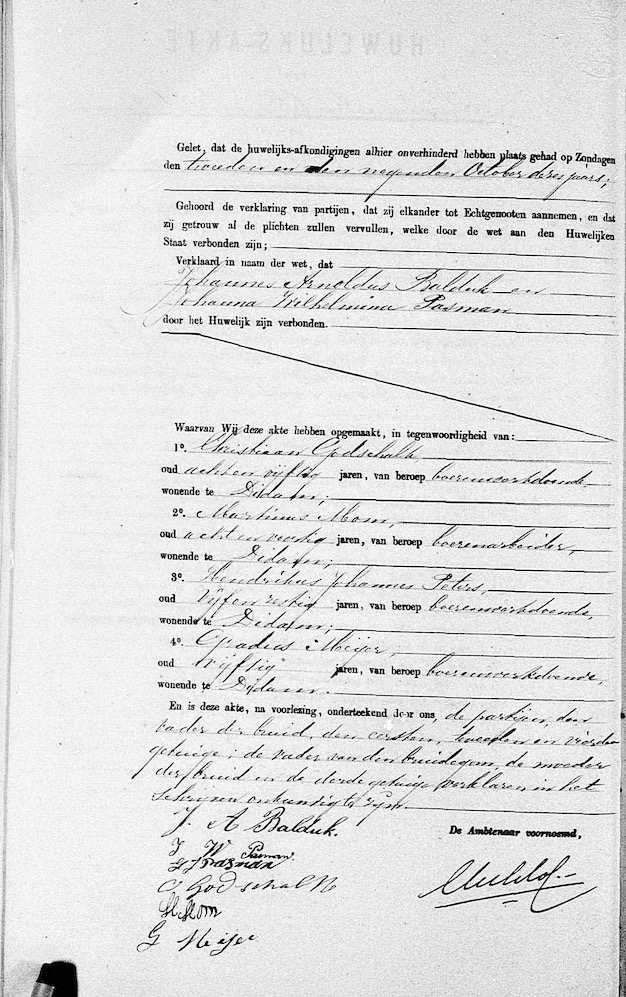 Gelet, dat de huwelijks-afkondigingen alhier onverhinderd hebben plaats gehad op Zondagen
den tweeden en den negenden October dezes jaars;
Gehoord de verklaring van partijen, dat zij elkander tot Echtgenooten aannemen, en dat
zij getrouw al de plichten zullen vervullen, welke door de wet aan den Huwelijken
Staat verbonden zijn;
Verklaard in naam der wet, dat
Johannes Arnoldus Balduk en
Johanna Wilhelmina Pasman
door het Huwelijk zijn verbonden.
Waarvan Wij deze akte hebben opgemaakt, in tegenwoordigheid van:
1°. Christiaan Godschalk
oud acht en vijftig jaren, van beroep boerenwerkdoende,
wonende te Didam;
2°. Martinus Mom,
oud acht en veertig jaren, van beroep boerenarbeider,
wonende te Didam;
3°. Hendrikus Johannes Peters,
oud vijfenzestig jaren, van beroep boerenwerkdoende,
wonende te Didam;
4°. Gradus Meijer,
oud vijftig jaren, van beroep boerenwerkdoende,
wonende te Didam.
En is deze akte, na voorlezing, onderteekend door ons, de partijen, den
vader der bruid, den eersten, tweeden en vierden
getuige; de vader van den bruidegom, de moeder
der bruid en de derde getuige verklaren in het
schrijven onkundig te zijn.
J. A Balduk.
De Ambtenaar voornoemd,
J W Pasman
G J Pasman
C Godschalk
M Mom
G Meijer